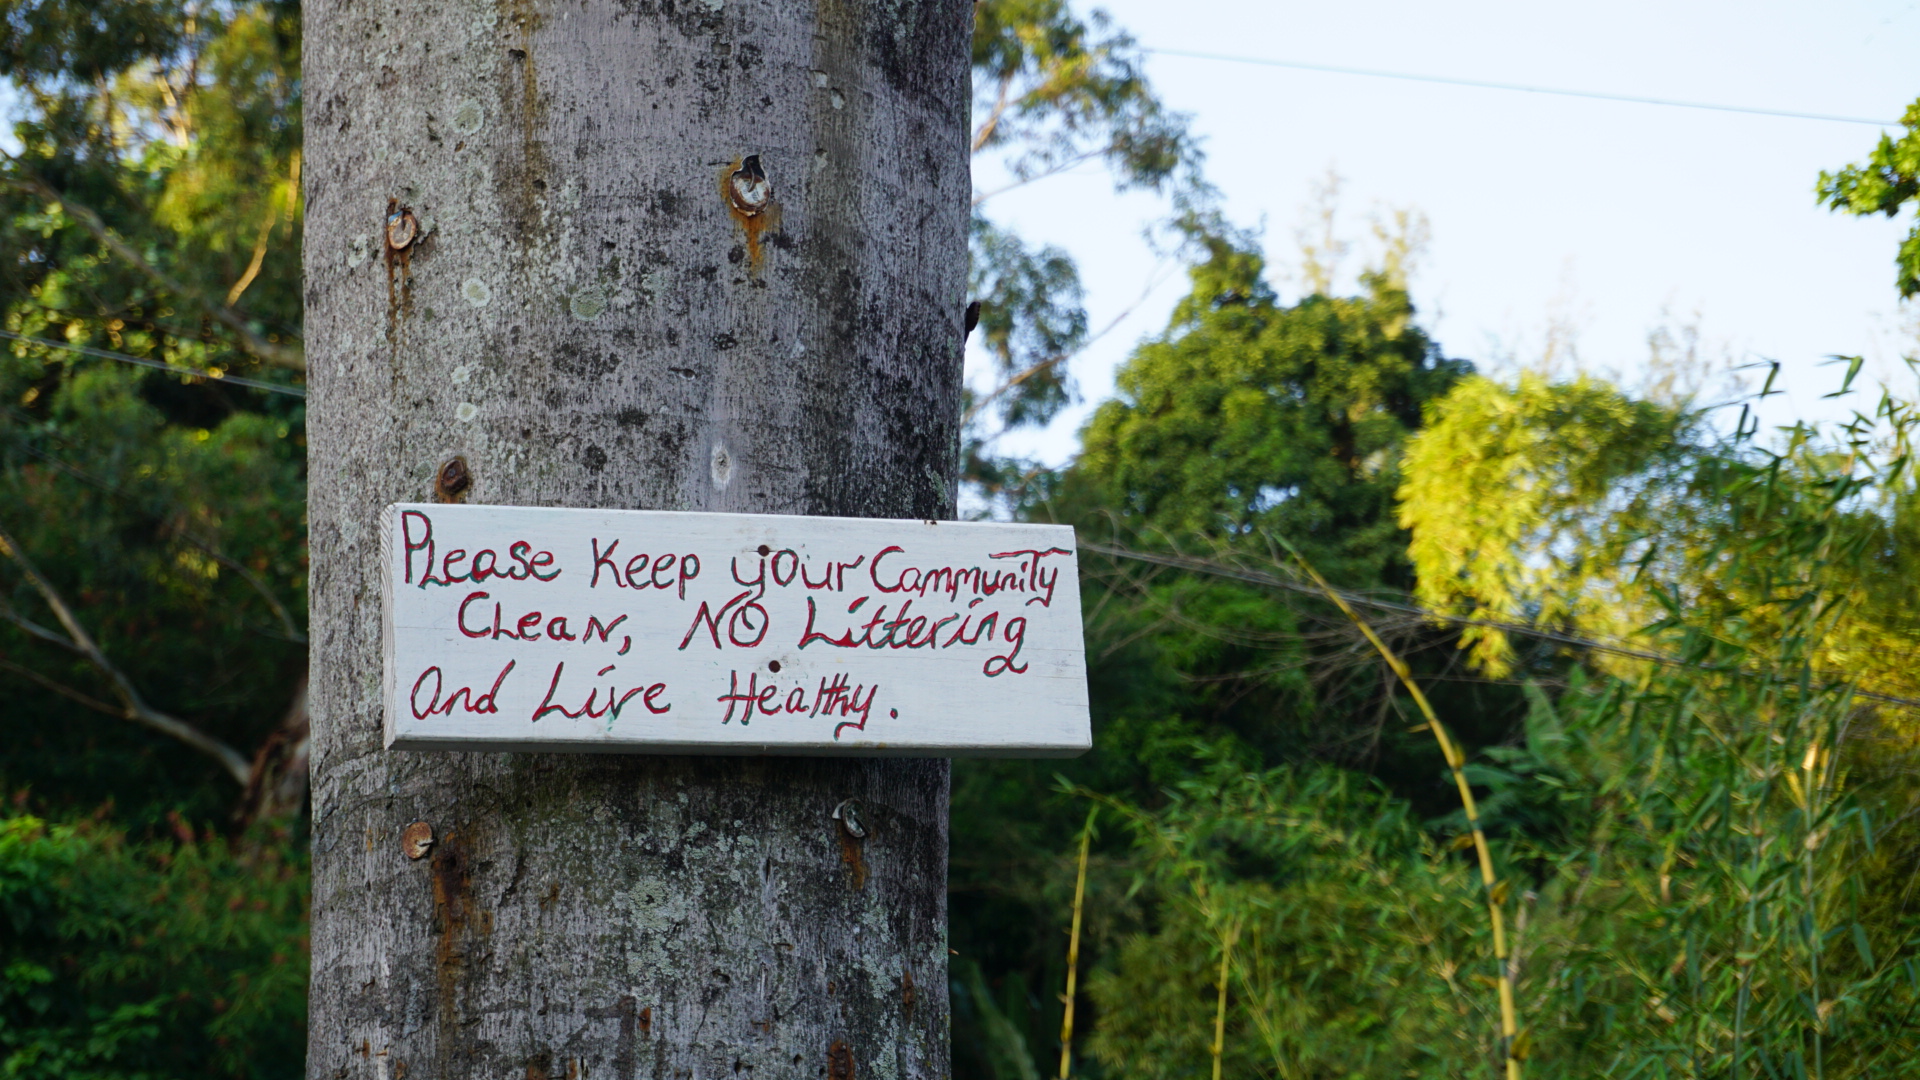 Please Keep your Cammunity
Clean, NO Littering
And Live Healthy.